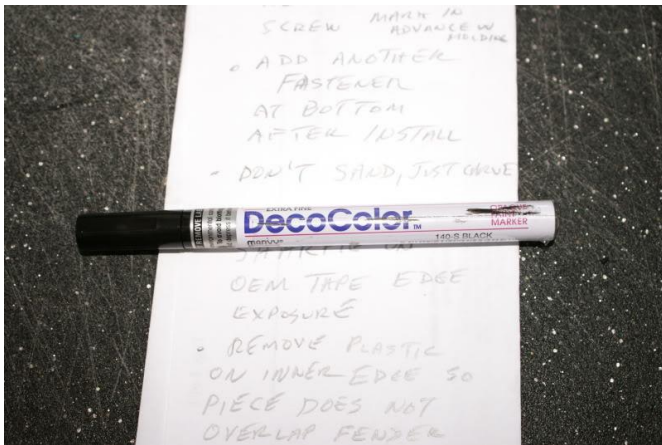 SCREW MARK IN
ADVANCE W
MOLDING
• ADD ANOTHER
FASTENER
AT BOTTOM
AFTER INSTALL
- DON'T SAND, JUST GLUE
EXTRA FINE
DecoColor™
marvy®
OPAQUE
PAINT
MARKER
140-S BLACK
REMOVE
OEM TAPE EDGE
EXPOSURE
• REMOVE PLASTIC
ON INNER EDGE SO
PIECE DOES NOT
OVERLAP FENDER